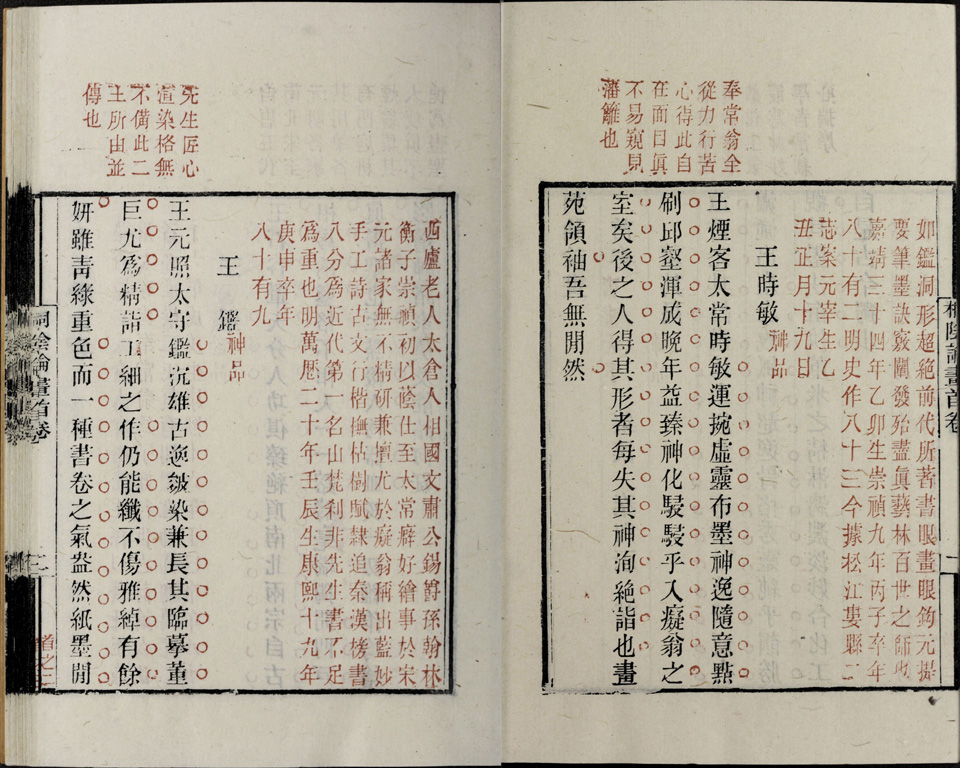 奉常翁全
從力行苦
心得此自
在面目眞
不易窺見
藩籬也
如鑑洞形超絕前代所著書眼畫眼鈎元提
要筆墨訣竅闡發殆盡眞藝林百世之師也
嘉靖三十四年乙卯生崇禎九年丙子卒年
八十有二明史作八十三今據松江婁縣二
志案元宰生乙
丑正月十九日
王時敏神品
王煙客太常時敏運捥虛靈布墨神逸隨意點
刷邱壑渾成晚年益臻神化駸駸乎入癡翁之
室矣後之人得其形者每失其神洵絕詣也畫
苑領袖吾無閒然
桐陰論畫首卷
一
先生匠心
渲染格無
不備此二
王所由並
傳也
西廬老人太倉人相國文肅公錫爵孫翰林
衡子崇禎初以蔭仕至太常癖好繪事於宋
元諸家無不精研兼擅尤於癡翁稱出藍妙
手工詩古文行楷撫枯樹賦隸追秦漢榜書
八分爲近代第一名山梵刹非先生書不足
爲重也明萬厯二十年壬辰生康熙十九年
庚申卒年
八十有九
王鑑神品
王元照太守鑑沉雄古逸皴染兼長其臨摹董
巨尤爲精詣工細之作仍能纖不傷雅綽有餘
妍雖靑綠重色而一種書卷之氣盎然紙墨閒
桐陰論畫首卷
二
首之二